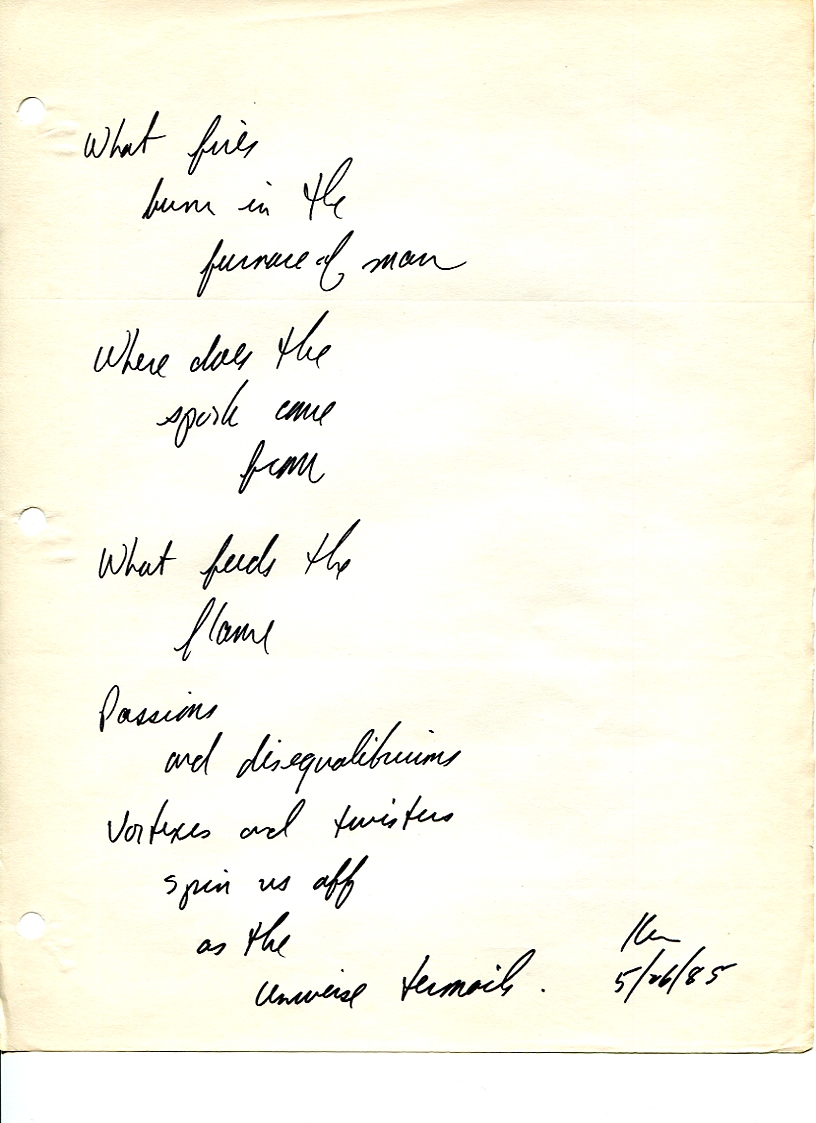 What fires
burn in the
furnace of man
Where does the
spark come
from
What feeds the
flame
Passions
and disequalibriums
Vortexes and twisters
spin us off
as the
universe termoils.
Ken
5/26/85